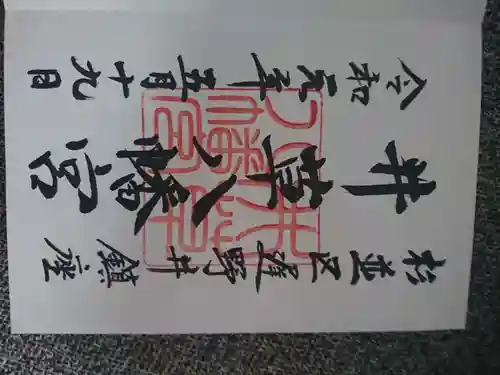 杉並区遅野井鎮座
井草八幡宮
令和元年五月十九日
井草
八幡宮